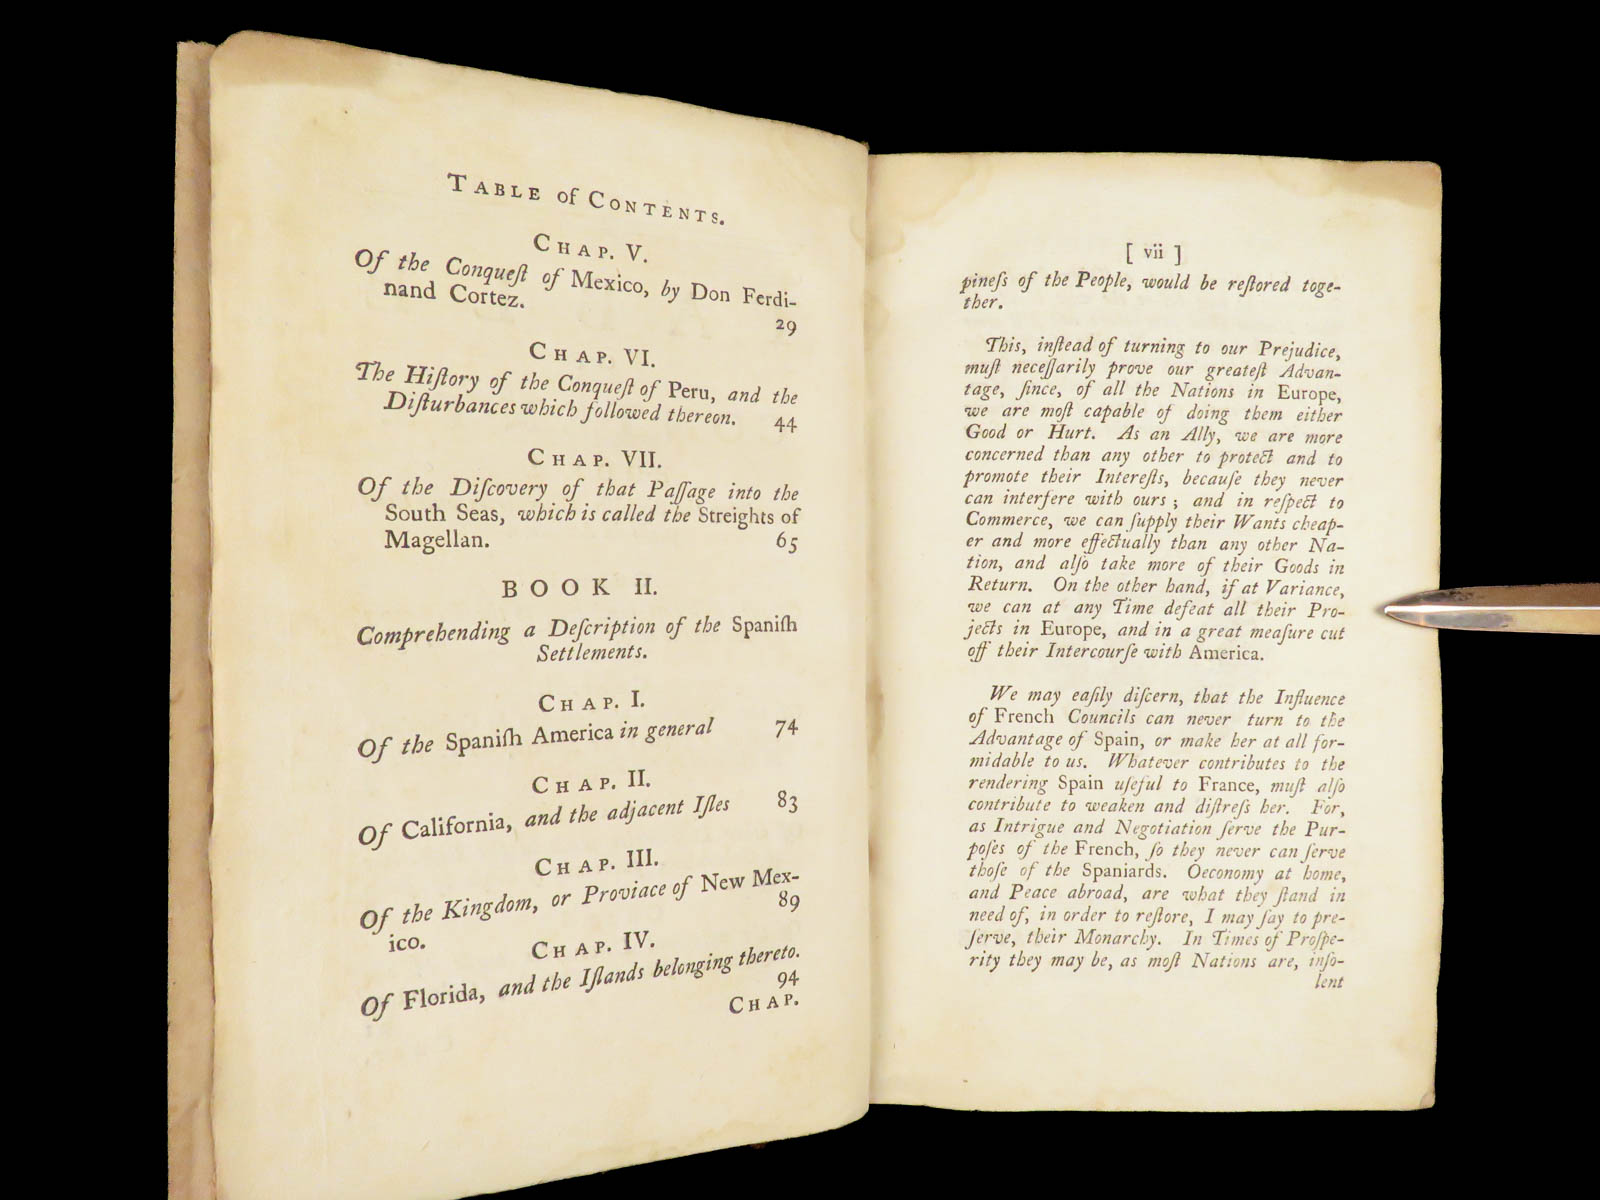 TABLE of CONTENTS.
CHAP. V.
Of the Conqueſt of Mexico, by Don Ferdi-
nand Cortez.
29
CHAP. VI.
The Hiſtory of the Conqueſt of Peru, and the
Diſturbances which followed thereon. 44
CHAP. VII.
Of the Diſcovery of that Paſſage into the
South Seas, which is called the Streights of
Magellan. 65
BOOK II.
Comprehending a Deſcription of the Spaniſh
Settlements.
CHAP. I.
Of the Spaniſh America in general 74
CHAP. II.
Of California, and the adjacent Iſles 83
CHAP. III.
Of the Kingdom, or Proviace of New Mex-
ico. 89
CHAP. IV.
Of Florida, and the Iſlands belonging thereto.
94
CHAP.
[ vii ]
pineſs of the People, would be reſtored toge-
ther.
This, inſtead of turning to our Prejudice,
muſt neceſſarily prove our greateſt Advan-
tage, ſince, of all the Nations in Europe,
we are moſt capable of doing them either
Good or Hurt. As an Ally, we are more
concerned than any other to protect and to
promote their Intereſts, becauſe they never
can interfere with ours ; and in reſpect to
Commerce, we can ſupply their Wants cheap-
er and more effectually than any other Na-
tion, and alſo take more of their Goods in
Return. On the other hand, if at Variance,
we can at any Time defeat all their Pro-
jects in Europe, and in a great meaſure cut
off their Intercourſe with America.
We may eaſily diſcern, that the Influence
of French Councils can never turn to the
Advantage of Spain, or make her at all for-
midable to us. Whatever contributes to the
rendering Spain uſeful to France, muſt alſo
contribute to weaken and diſtreſs her. For,
as Intrigue and Negotiation ſerve the Pur-
poſes of the French, ſo they never can ſerve
thoſe of the Spaniards. Oeconomy at home,
and Peace abroad, are what they ſtand in
need of, in order to reſtore, I may ſay to pre-
ſerve, their Monarchy. In Times of Proſpe-
rity they may be, as moſt Nations are, inſo-
lent